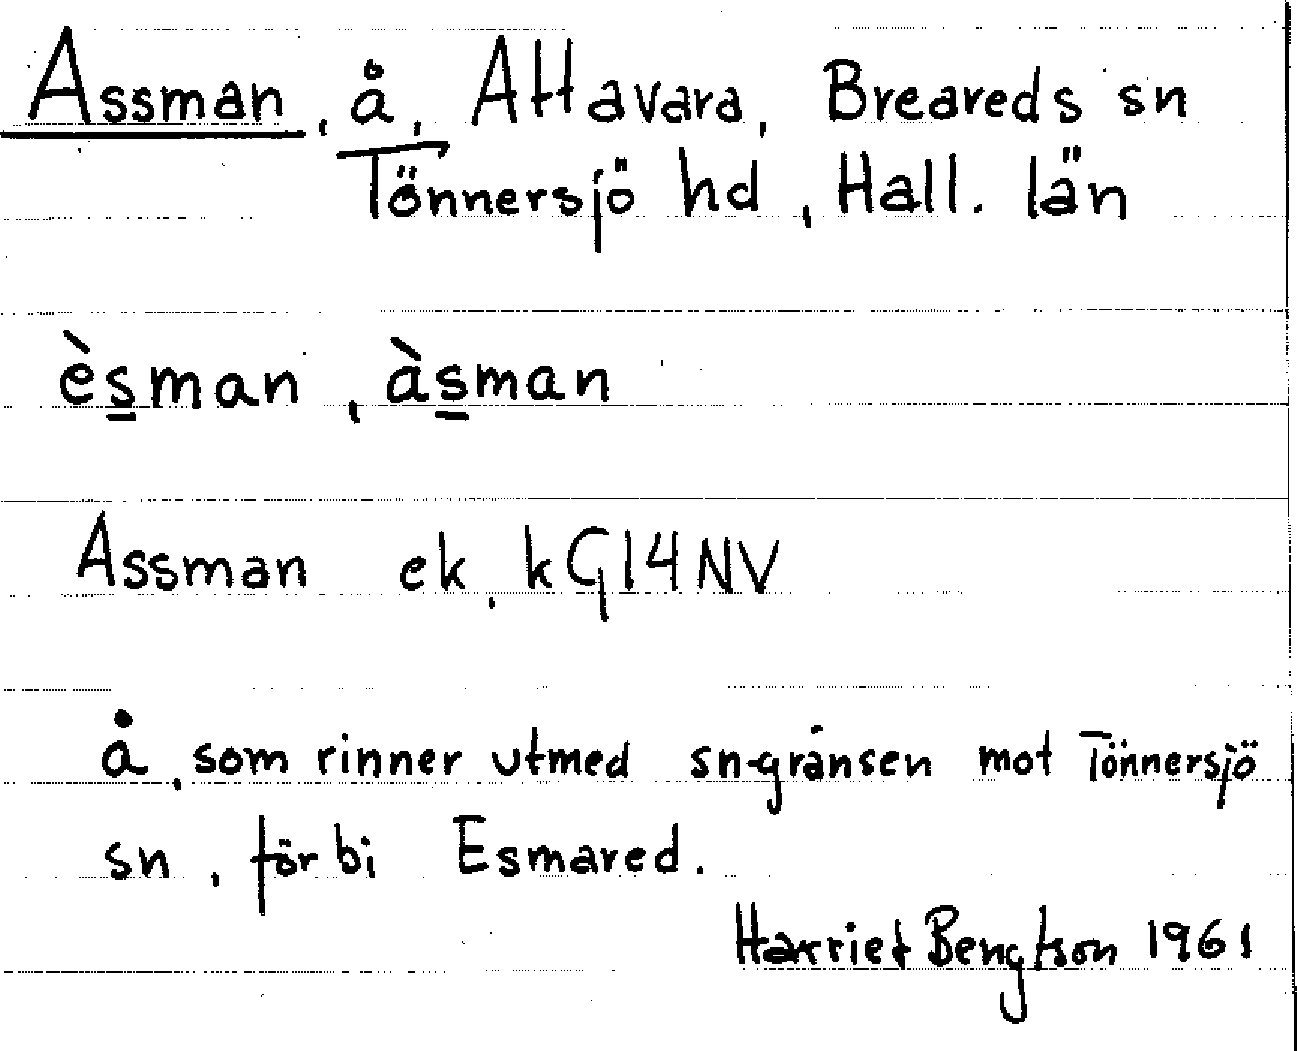 Assman, å, Attavara, Breareds sn
Tönnersjö hd, Hall. län
èsman, àsman
Assman ek. kG14NV
å, som rinner utmed sn-gränsen mot Tönnersjö
sn, förbi Esmared.
Harriet Bengtson 1961